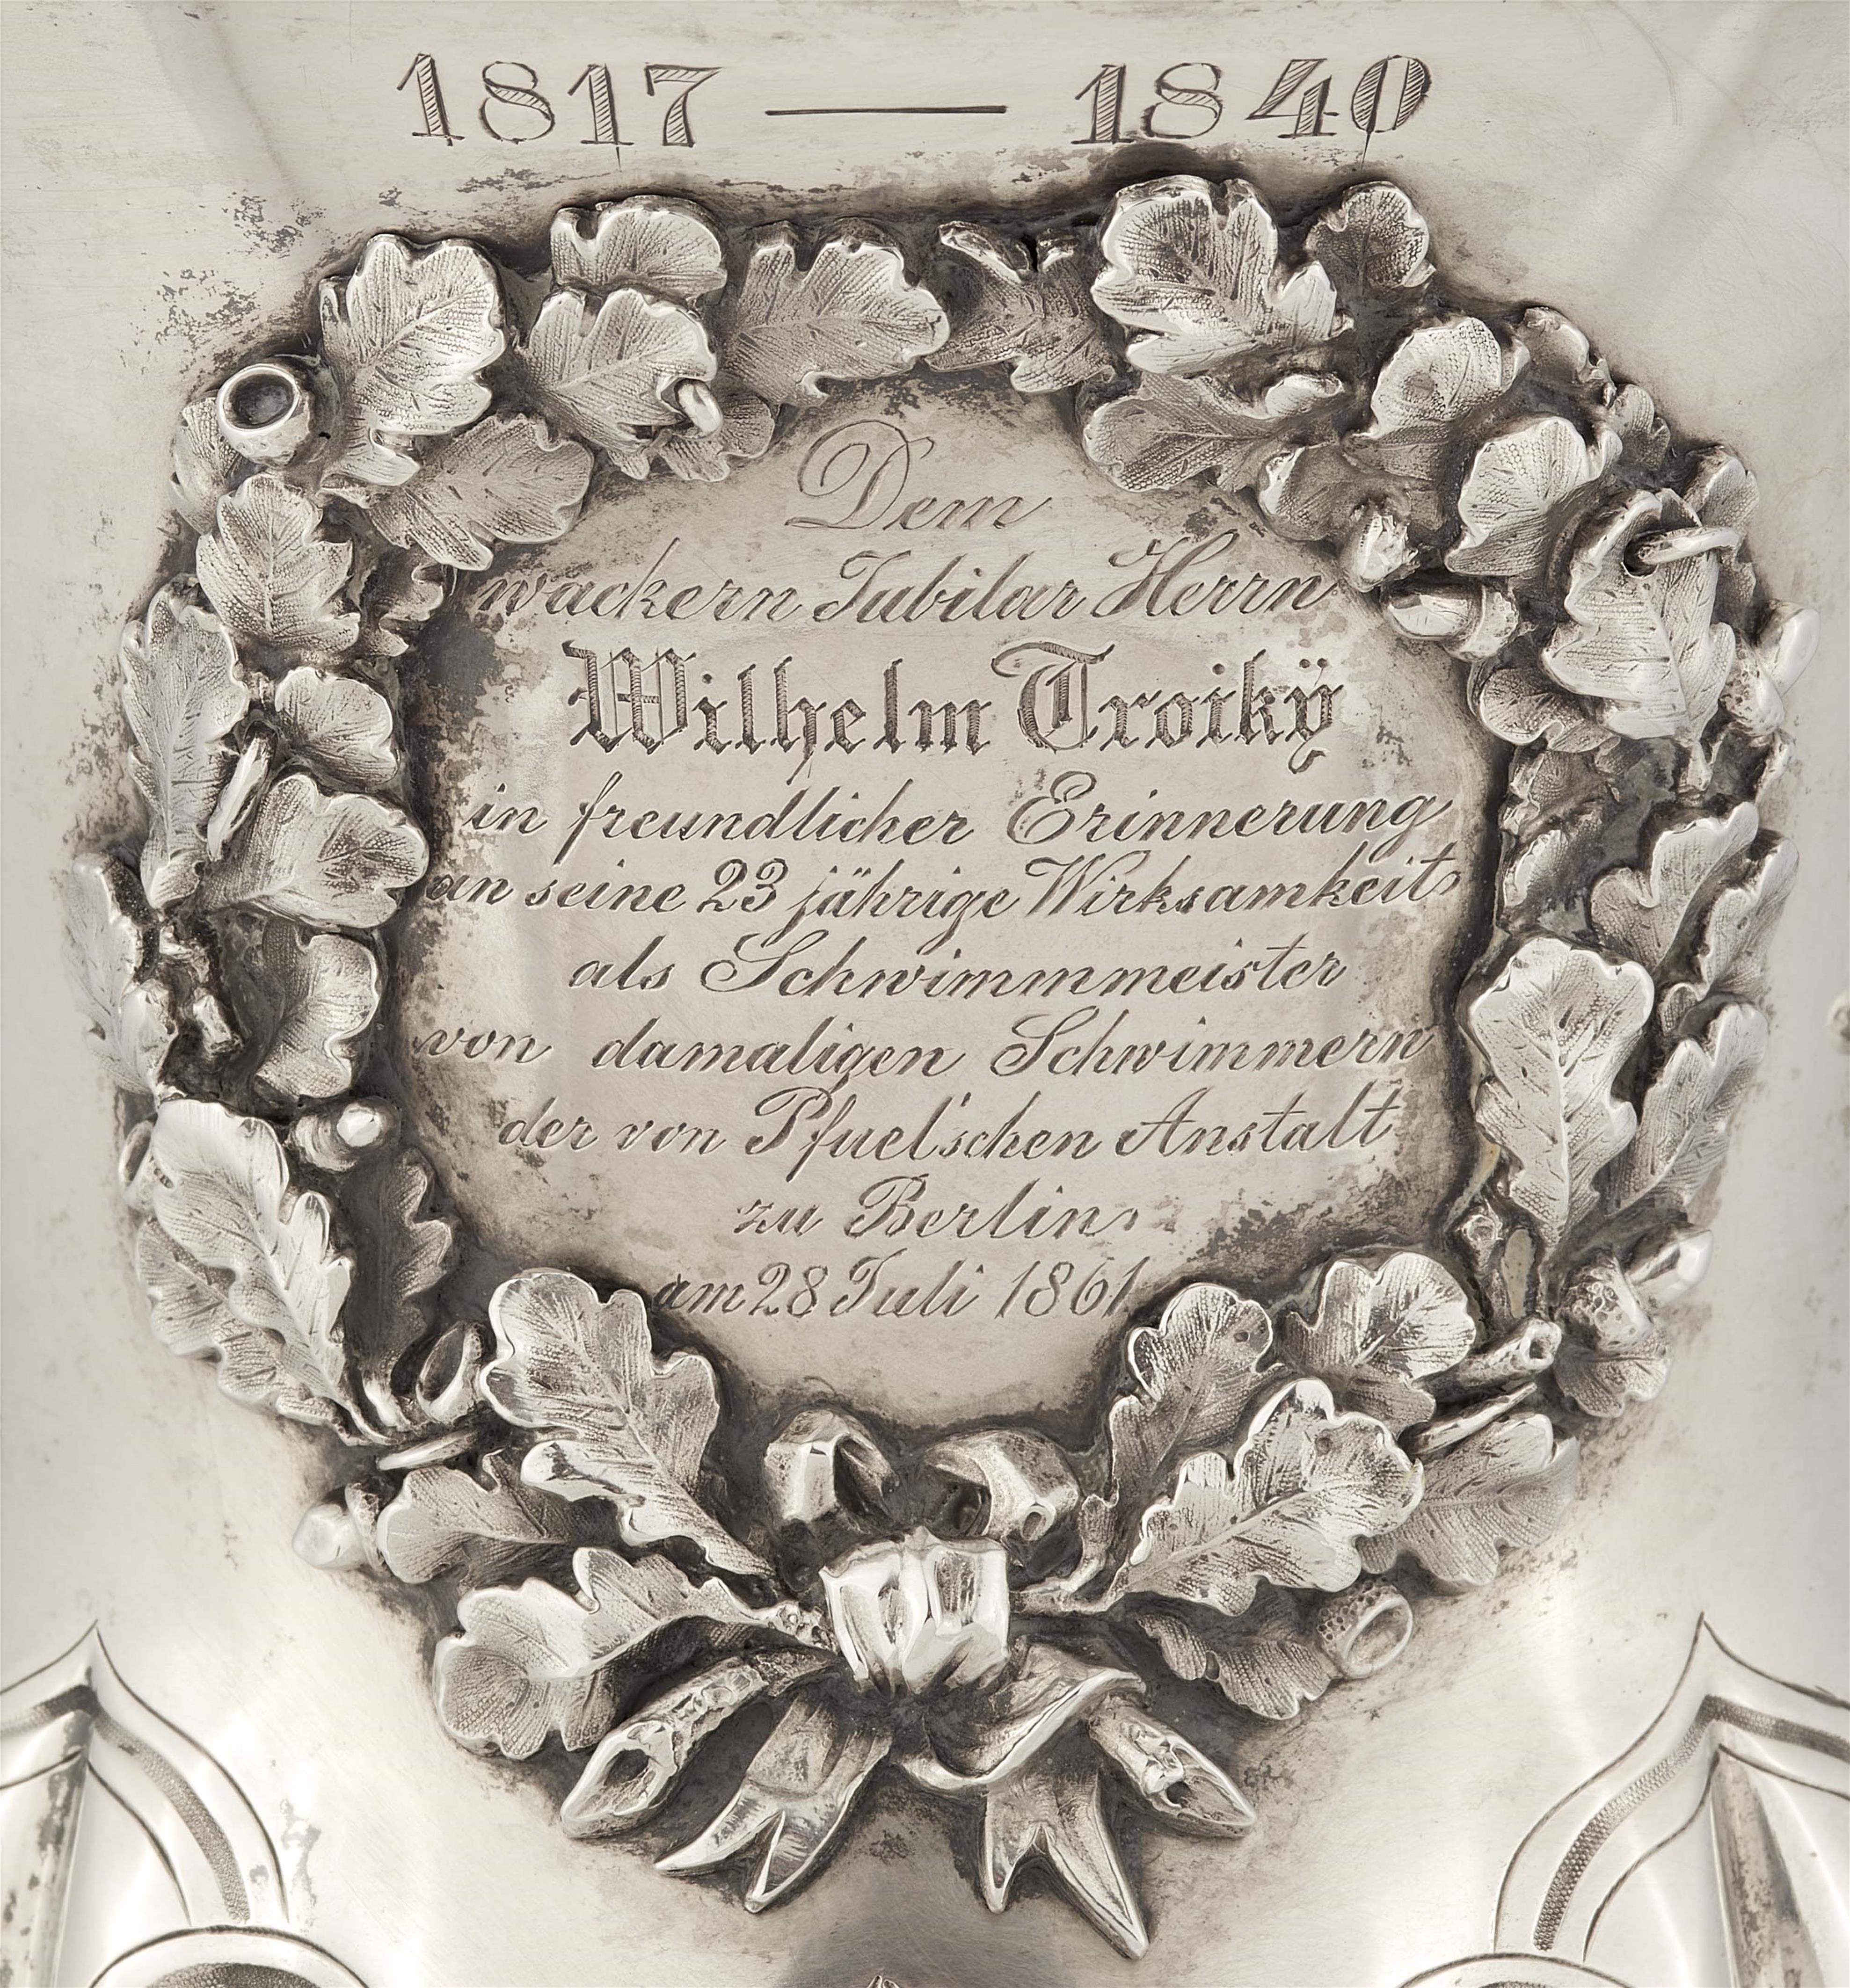 1817 — 1840
Dem
wackern Jubilar Herrn
Wilhelm Troikÿ
in freundlicher Erinnerung
an seine 23 jährige Wirksamkeit
als Schwimmmeister
von damaligen Schwimmern
der von Pfuel'schen Anstalt
zu Berlin
am 28 Juli 1861